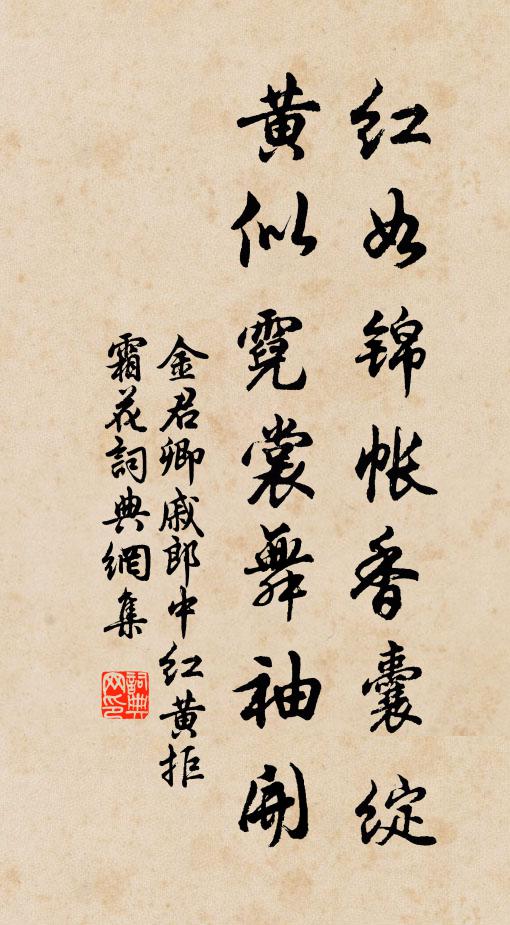 红如锦帐香囊绽
黄似霓裳舞袖开
金君卿戚郎中红黄拒
霜花詞典網集
詞典网印